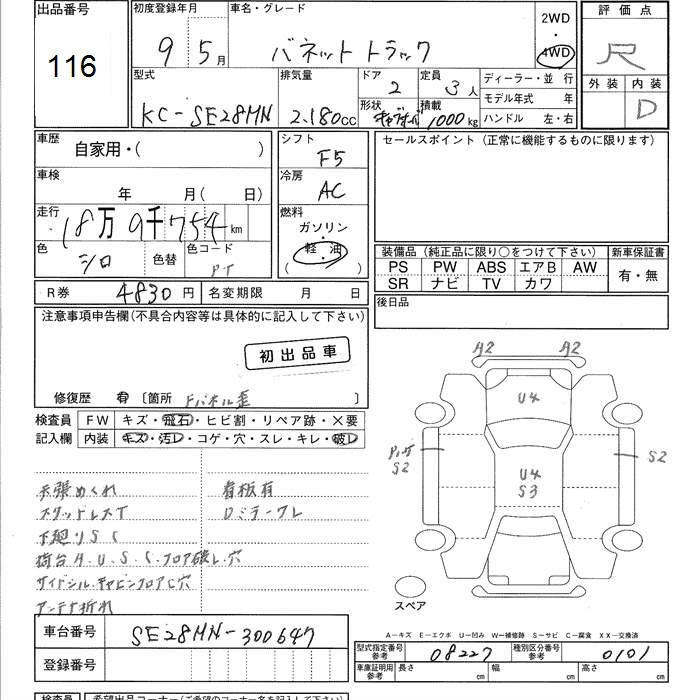 出品番号
116
初度登録年月
9 5月
車名・グレード
バネットトラック
2WD
・
4WD
評価点
R
外装 内装
D
型式
KC-SE28MN
排気量
2.180cc
ドア
2
定員
3人
形状
積載
1000kg
ディーラー・並 行
モデル年式 年
ハンドル 左・右
車歴
自家用・( )
車検
年 月( 日)
走行
18万9千754km
色
シロ
色替
色コード
PT
シフト
F5
冷房
AC
燃料
ガソリン
・
軽・油
( )
セールスポイント (正常に機能するものに限ります)
装備品 (純正品に限り○をつけて下さい)
PS PW ABS エアB AW
SR ナビ TV カワ
新車保証書
有・無
後日品
R券 4830円
名変期限 月 日
注意事項申告欄(不具合内容等は具体的に記入して下さい)
初出品車
修復歴 有 〔箇所 Fパネル歪 〕
検査員
記入欄
FW キズ・飛石・ヒビ割・リペア跡・×要
内装 キズ・汚レ・コゲ・穴・スレ・キレ・破レ
天張めくれ
看板有
スタッドレスT
Dミラークレ
下廻りSC
荷台A.U.S.C.フロア破レ.穴
サイドシル.キャビンフロアC穴
アンテナ折れ
A2 A2
U4
S2
U4
S3
S2
スペア
A－キズ E－エクボ U－凹み W－補修跡 S－サビ C－腐食 XX－交換済
車台番号
SE28MN-300647
登録番号
型式指定番号
参考
08227
種別区分番号
参考
0101
車庫証明用
参考
長さ 幅 高さ
検査員
希望出品コーナー(ご希望のコーナー名を記入下さい)